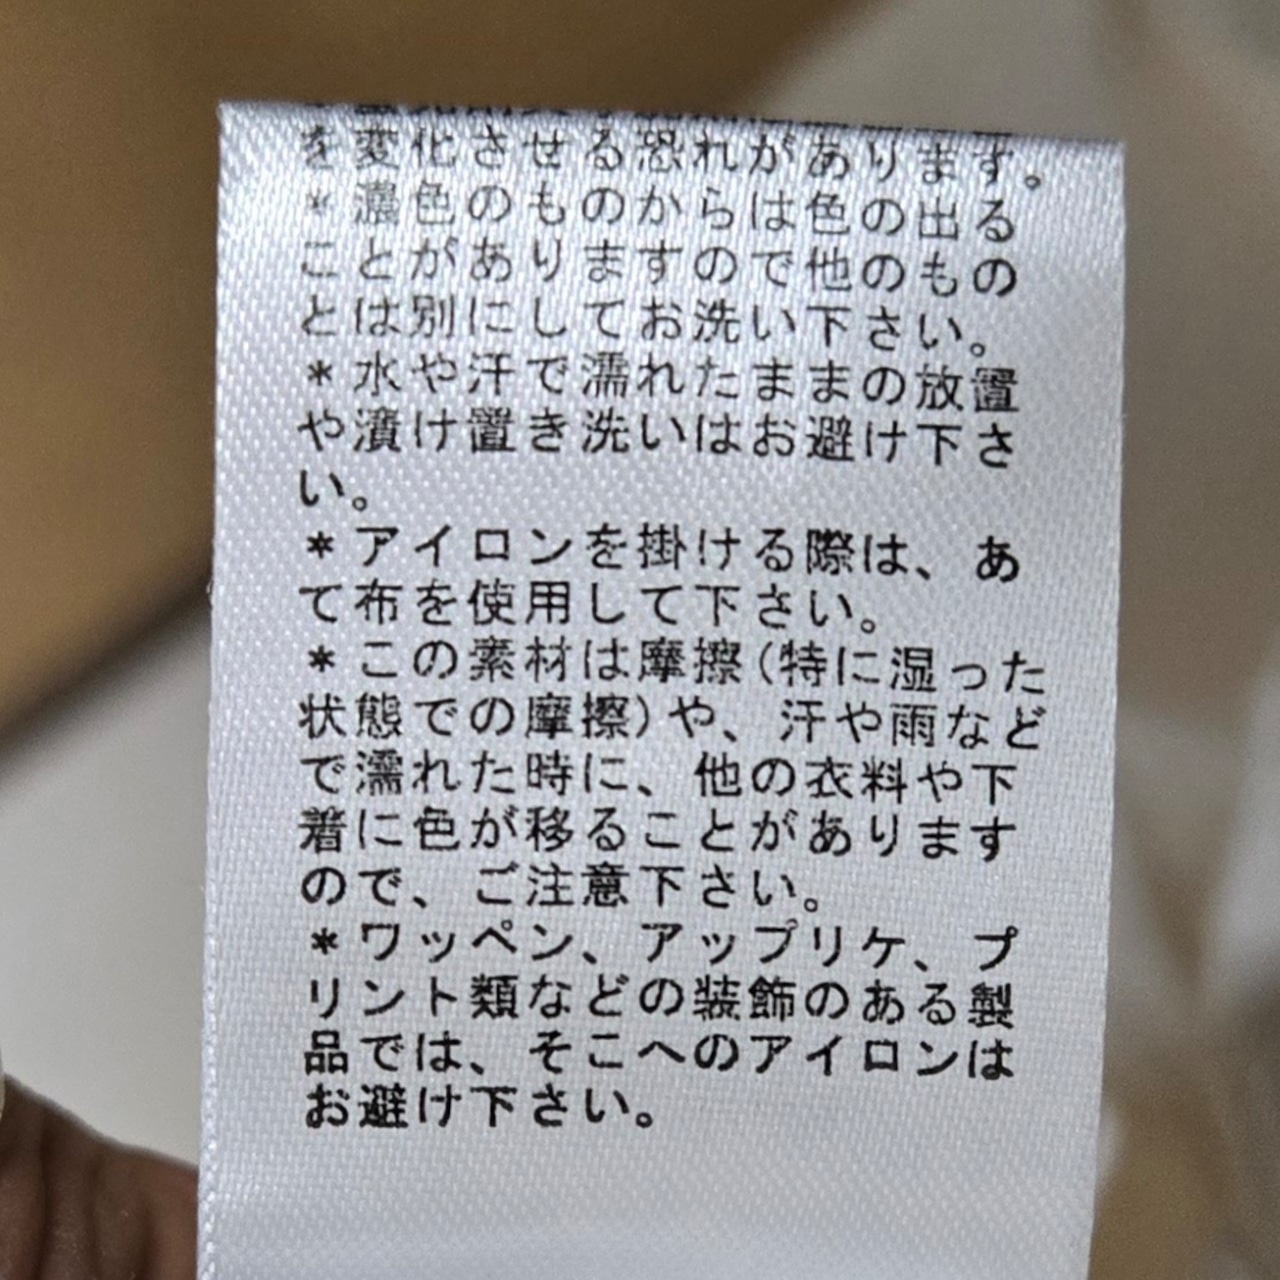 を変化させる恐れがあります。
＊濃色のものからは色の出る
ことがありますので他のもの
とは別にしてお洗い下さい。
＊水や汗で濡れたままの放置
や漬け置き洗いはお避け下さ
い。
＊アイロンを掛ける際は、あ
て布を使用して下さい。
＊この素材は摩擦(特に湿った
状態での摩擦)や、汗や雨など
で濡れた時に、他の衣料や下
着に色が移ることがあります
ので、ご注意下さい。
＊ワッペン、アップリケ、プ
リント類などの装飾のある製
品では、そこへのアイロンは
お避け下さい。